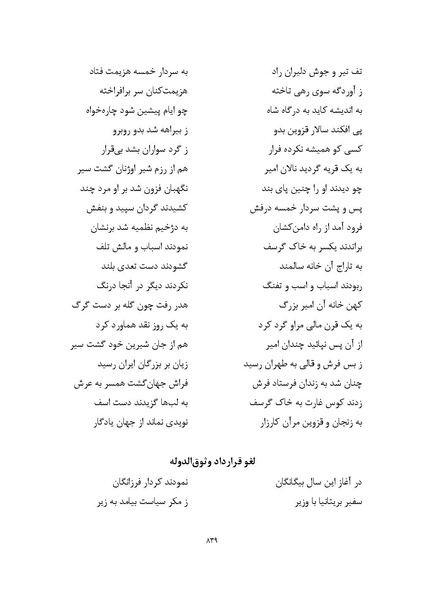 تف تیر و جوش دلیران راد به سردار خمسه هزیمت فتاد
ز آوردگه سوی رهی تاخته هزیمت‌کنان سر برافراخته
به اندیشه کاید به درگاه شاه چو ایام پیشین شود چاره‌خواه
پی افکند سالار قزوین بدو ز بیراهه شد بدو روبرو
کسی کو همیشه نکرده فرار ز گرد سواران بشد بی‌قرار
به یک قریه گردید نالان امیر هم از رزم شیر اوژنان گشت سیر
چو دیدند او را چنین پای بند نگهبان فزون شد بر او مرد چند
پس و پشت سردار خمسه درفش کشیدند گردان سپید و بنفش
فرود آمد از راه دامن‌کشان به دژخیم نظمیه شد برنشان
براندند یکسر به خاک گرسف نمودند اسباب و مالش تلف
به تاراج آن خانه سالمند گشودند دست تعدی بلند
ربودند اسباب و اسب و تفنگ نکردند دیگر در آنجا درنگ
کهن خانه آن امیر بزرگ هدر رفت چون گله بر دست گرگ
به یک قرن مالی مراو گرد کرد به یک روز نقد هماورد کرد
از آن پس نپائید چندان امیر هم از جان شیرین خود گشت سیر
ز بس فرش و قالی به طهران رسید زیان بر بزرگان ایران رسید
چنان شد به زندان فرستاد فرش فراش جهان‌گشت همسر به عرش
زدند کوس غارت به خاک گرسف به لب‌ها گزیدند دست اسف
به زنجان و قزوین مرآن کارزار نویدی نماند از جهان یادگار
لغو قرارداد وثوق‌الدوله
در آغاز این سال بیگانگان نمودند کردار فرزانگان
سفیر بریتانیا با وزیر ز مکر سیاست بیامد به زیر
۸۳۹